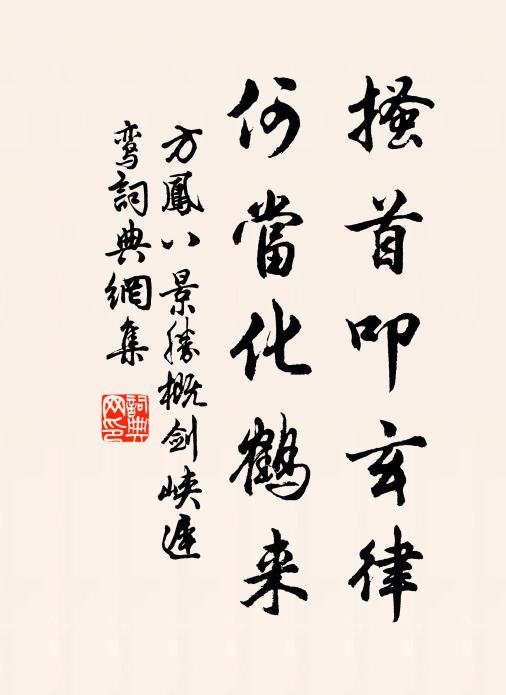 搔首叩玄律
何當化鶴来
方鳳八景勝概劍峽遲
鸾詞典網集
詞典
网印